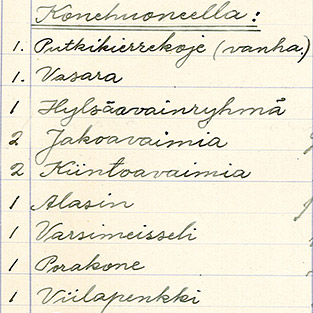 Konehuoneella:
1. Putkikierrekoje (vanha.)
1. Vasara
1 Hylsäavainryhmä
2 Jakoavaimia
2 Kiintoavaimia
1 Alasin
1 Varsimeisseli
1 Porakone
1 Viilapenkki